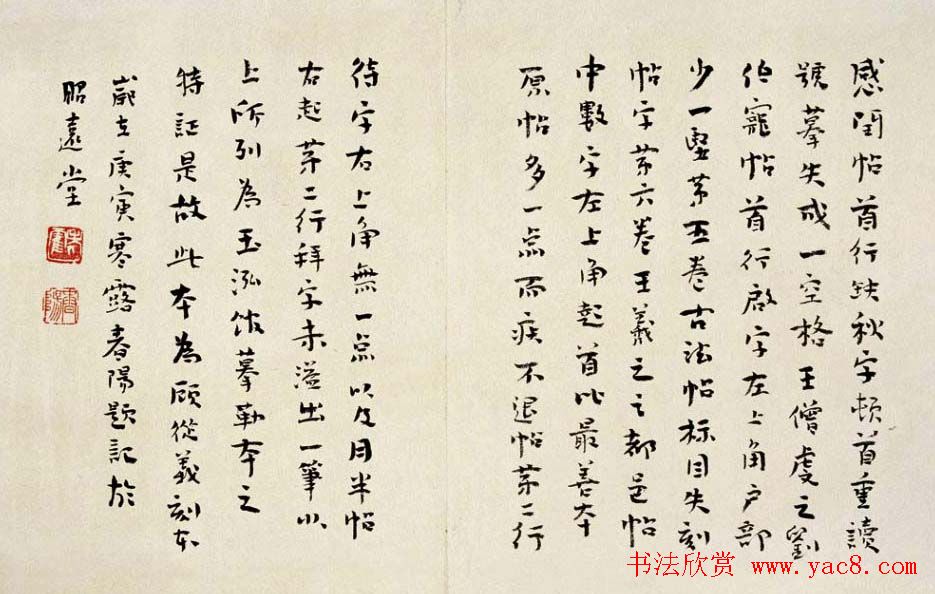 感閏帖首行缺秋字頓首重讀
號摹失成一空格王僧虔之劉
伯寵帖首行啟字左上角户部
少一竪苐五卷古法帖标目失刻
帖字苐六卷王羲之之都邑帖
中數字左上角起首比最善本
原帖多一点而疾不退帖苐二行
待字右上角無一点以及月半帖
右起苐二行拜字未溢出一筆以
上所列為玉泓馆摹勒本之
特証是故此本為顾從義刻本
歲在庚寅寒露春陽題記於
昭遠堂
书法欣赏
www.yac8.com